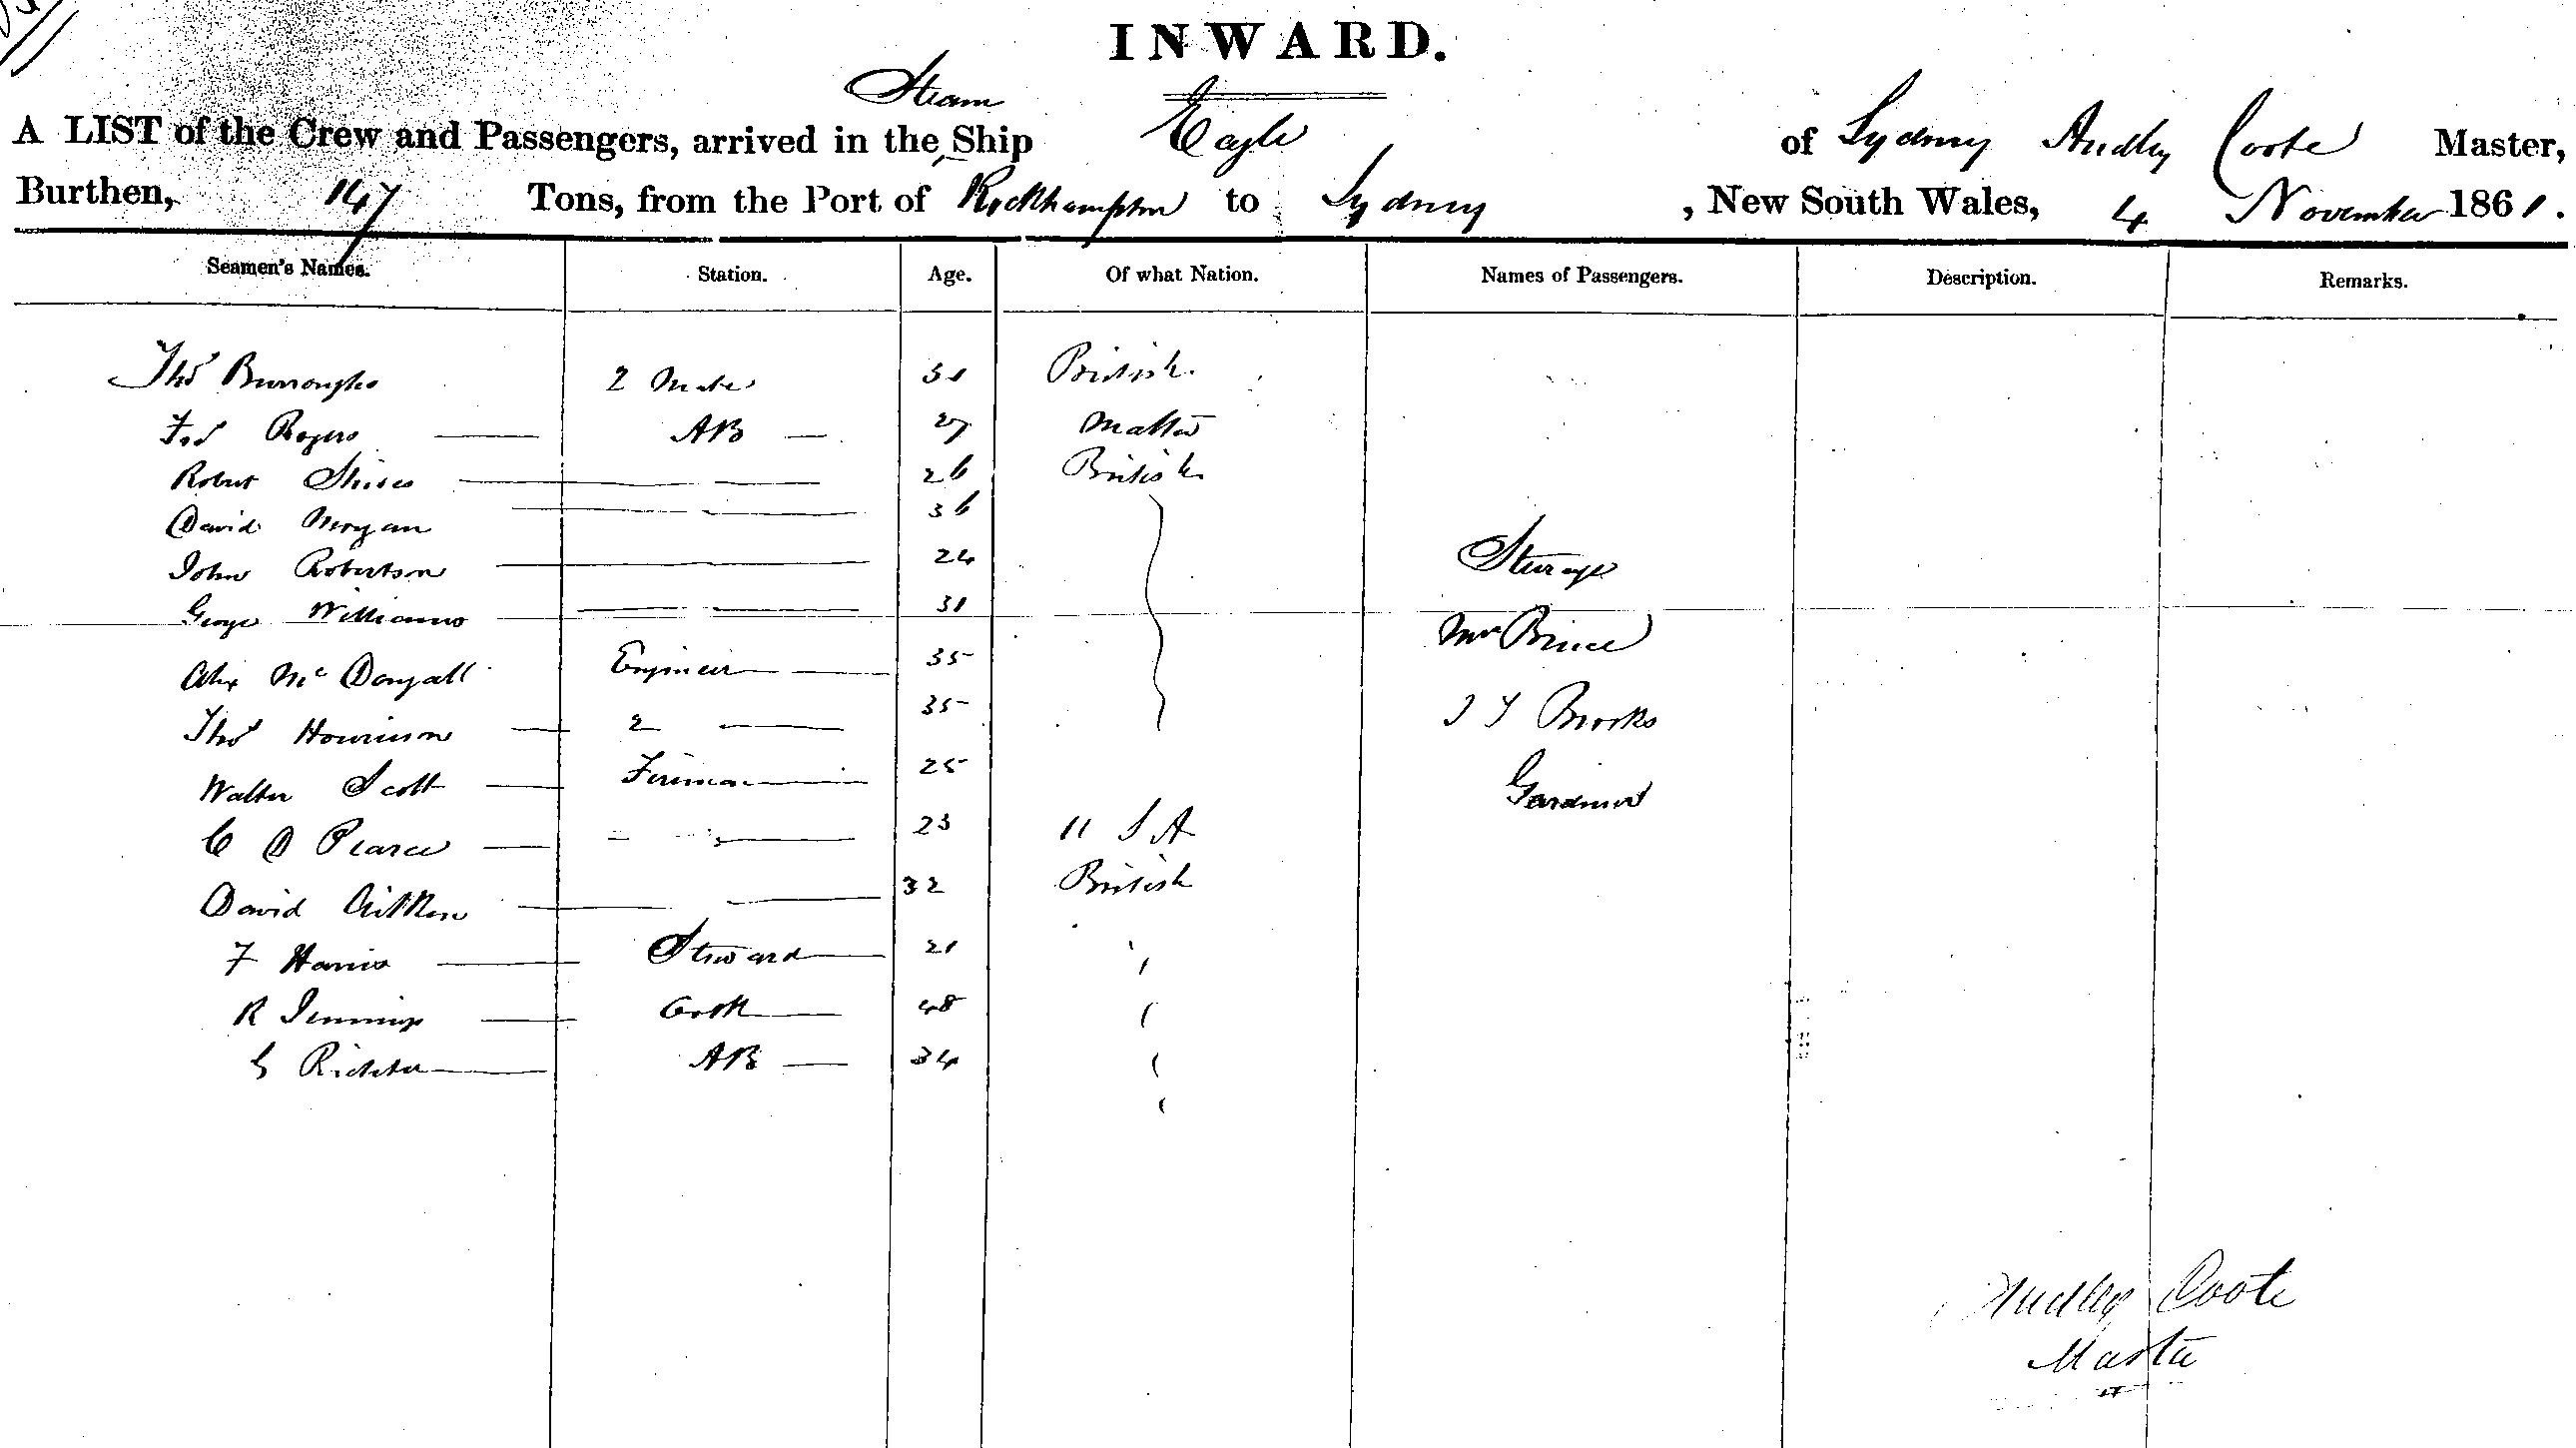 INWARD.
Steam
A LIST of the Crew and Passengers, arrived in the Ship Eagle of Sydney Audley Coote Master,
Burthen, 147 Tons, from the Port of Rockhampton to Sydney, New South Wales, 4 November 1861.
Seamen's Names. Station. Age. Of what Nation. Names of Passengers. Description. Remarks.
Thos Burroughs 2 Mate 31 British
Rogers AB 27 Malta
Robert 26 British
David Morgan 36
John Robertson 24 Steerage
George Williams 31 Mr Prince
Alex McDougall Engineer 35
Thos 2 35 Brooks
Walter Scott Fireman 25 Gardiner
C D Pearce 23 U S A
David Aitken 32 British
F Harris Steward 21 "
R Jennings Cook 48 "
G Richter AB 34 "
Audley Coote
Master